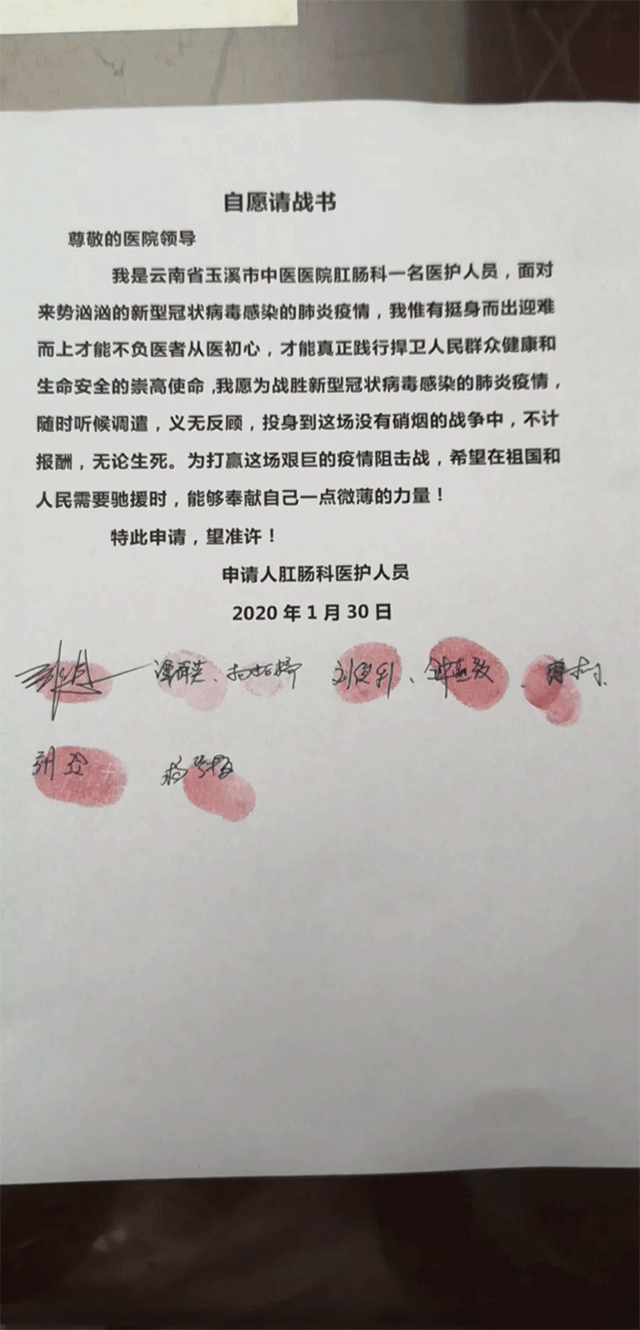 自愿请战书
尊敬的医院领导
我是云南省玉溪市中医医院肛肠科一名医护人员，面对
来势汹汹的新型冠状病毒感染的肺炎疫情，我惟有挺身而出迎难
而上才能不负医者从医初心，才能真正践行捍卫人民群众健康和
生命安全的崇高使命，我愿为战胜新型冠状病毒感染的肺炎疫情，
随时听候调遣，义无反顾，投身到这场没有硝烟的战争中，不计
报酬，无论生死。为打赢这场艰巨的疫情阻击战，希望在祖国和
人民需要驰援时，能够奉献自己一点微薄的力量！
特此申请，望准许！
申请人肛肠科医护人员
2020年1月30日